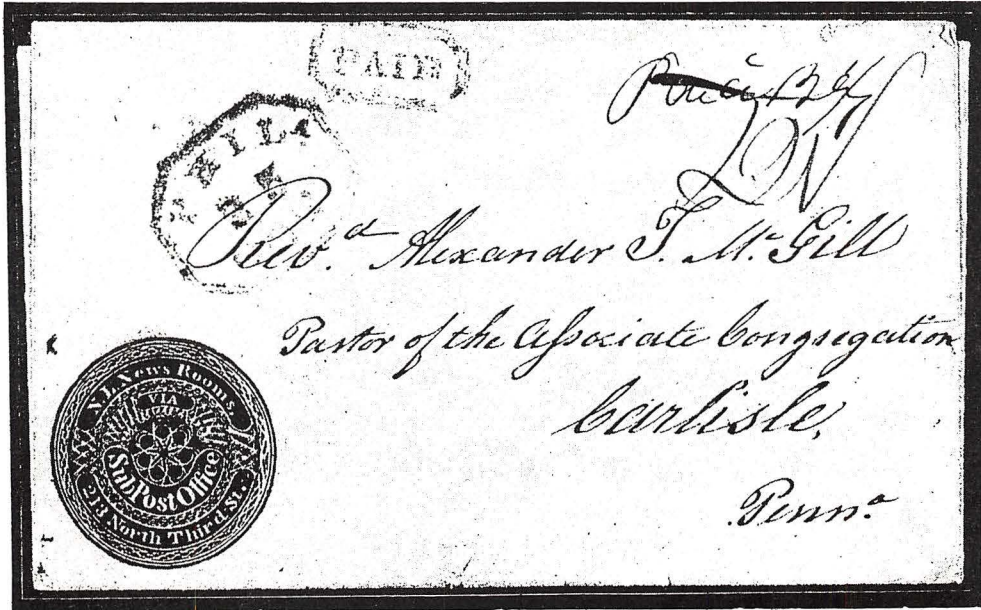 PAID
PHILA
Rev.d Alexander T. Mc Gill
Pastor of the Associate Congregation
Carlisle,
Penna.
N.L. News Rooms,
VIA
Sub Post Office
213 North Third St.